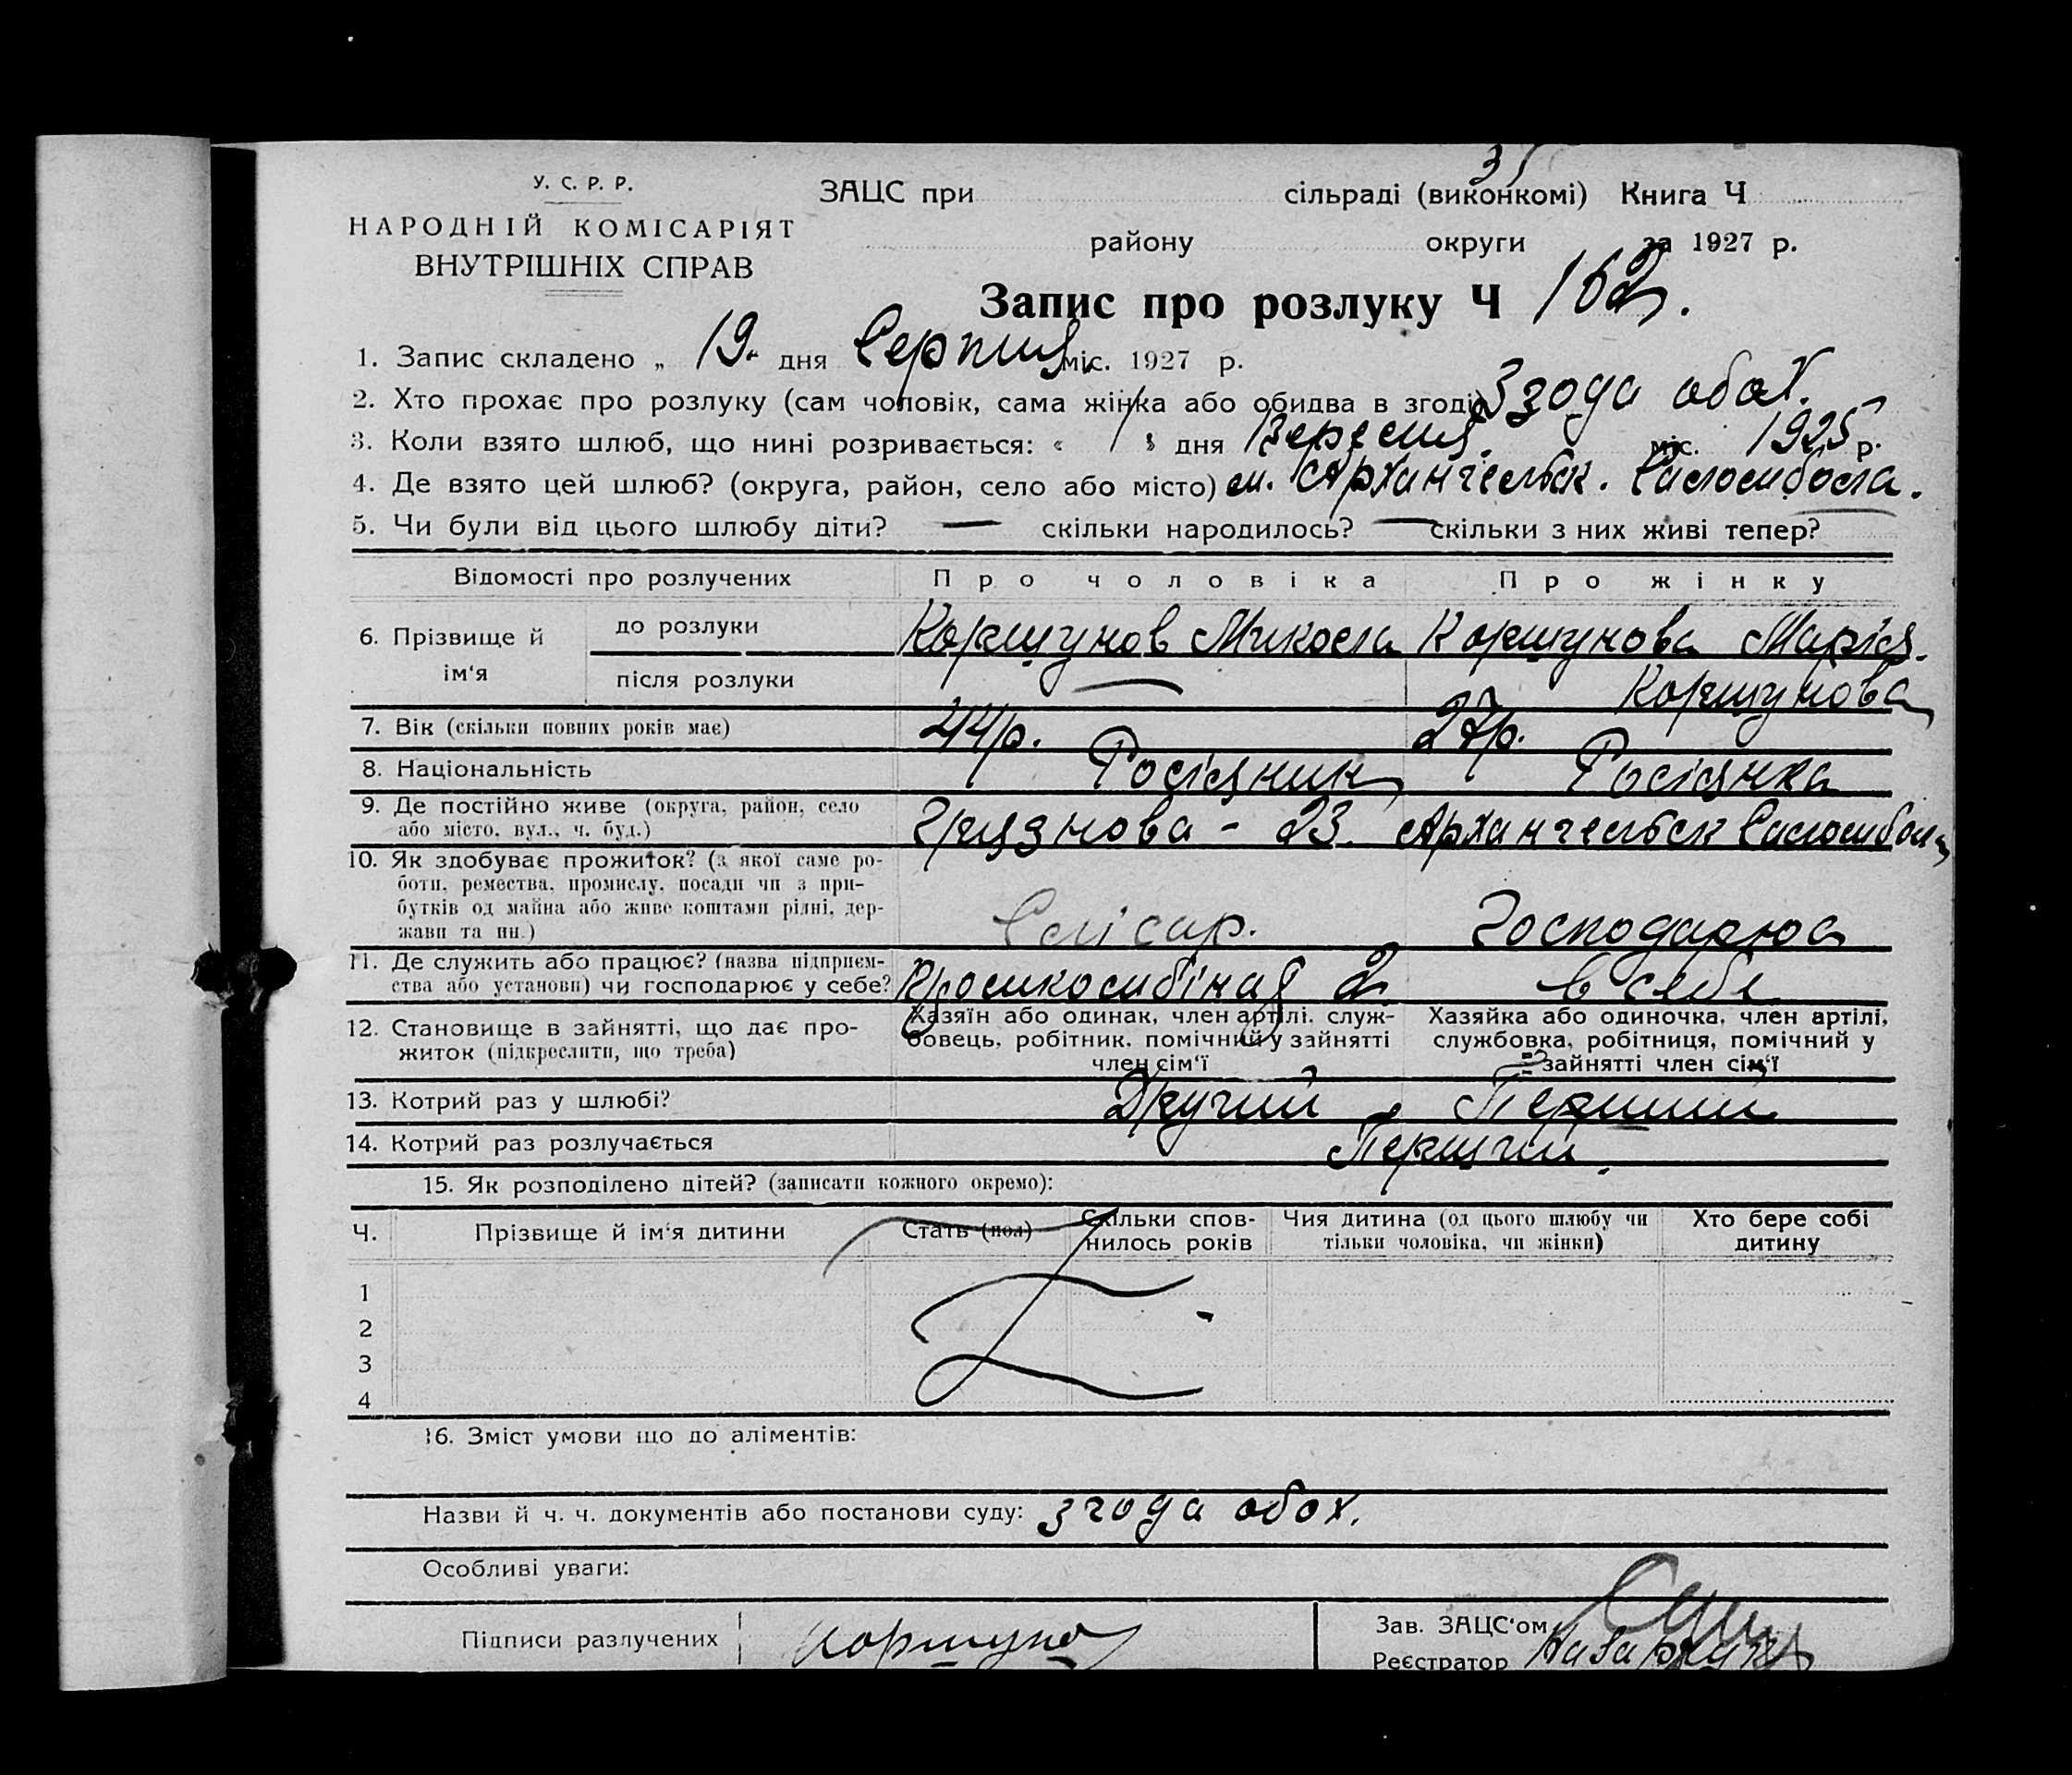 35
У. С. Р. Р.
НАРОДНІЙ КОМІСАРІЯТ
ВНУТРІШНІХ СПРАВ
ЗАЦС при сільраді (виконкомі) Книга Ч
району округи за 1927 р.
Запис про розлуку Ч 162.
1. Запис складено „ 19 дня Серпня міс. 1927 р.
2. Хто прохає про розлуку (сам чоловік, сама жінка або обидва в згоді) Згода обох.
3. Коли взято шлюб, що нині розривається: « 1 » дня Вересня міс. 1925 р.
4. Де взято цей шлюб? (округа, район, село або місто) м. Архангельск. Саломбола.
5. Чи були від цього шлюбу діти? — скільки народилось? — скільки з них живі тепер?
Відомості про розлучених Про чоловіка Про жінку
6. Прізвище й ім‘я до розлуки Коршунов Микола Коршунова Марія.
після розлуки — Коршунова
7. Вік (скільки повних років має) 44 р. 27 р.
8. Національність Росіянин Росіянка
9. Де постійно живе (округа, район, село
або місто, вул., ч. буд.) Грязнова - 23. Архангельск Саломбол
10. Як здобуває прожиток? (з якої саме ро-
боти, ремества, промислу, посади чи з при-
бутків од майна або живе коштами рідні, дер-
жави та ин.) Слісар. Господарює
11. Де служить або працює? (назва підприєм-
ства або установи) чи господарює у себе? 2. в себе
12. Становище в зайнятті, що дає про-
житок (підкреслити, що треба)
Хазяїн або одинак, член артілі, служ-
бовець, робітник, помічний у зайнятті
член сім‘ї
Хазяйка або одиночка, член артілі,
службовка, робітниця, помічний у
зайнятті член сім‘ї
13. Котрий раз у шлюбі? Другий Перший
14. Котрий раз розлучається Перший.
15. Як розподілено дітей? (записати кожного окремо):
Ч. Прізвище й ім‘я дитини Стать (пол) Скільки спов-
нилось років Чия дитина (од цього шлюбу чи
тільки чоловіка, чи жінки) Хто бере собі
дитину
1
2
3
4
16. Зміст умови що до аліментів:
Назви й ч. ч. документів або постанови суду: згода обох.
Особливі уваги:
Підписи разлучених Коршунов
Зав. ЗАЦС‘ом
Реєстратор